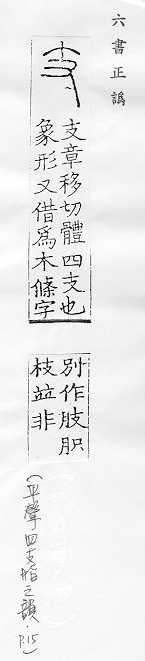 六書正譌
支章移切體四支也
象形又借爲木條字
別作肢胑
枝並非
(平聲四支脂之韻·P.15)